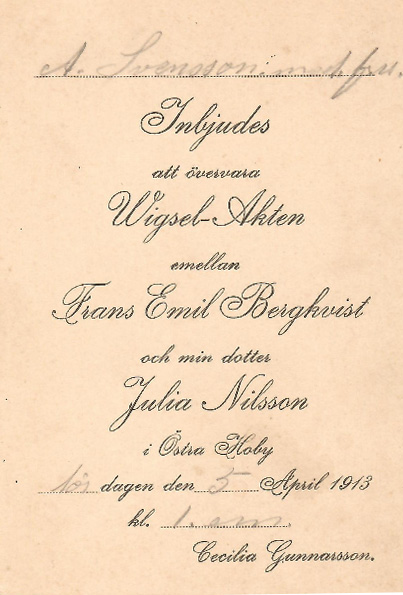 A. Svensson. med fru.
Inbjudes
att övervara
Wigsel-Akten
emellan
Frans Emil Bergkvist
och min dotter
Julia Nilsson
i Östra Hoby
lör dagen den 5 April 1913
kl. 1. em.
Cecilia Gunnarsson.